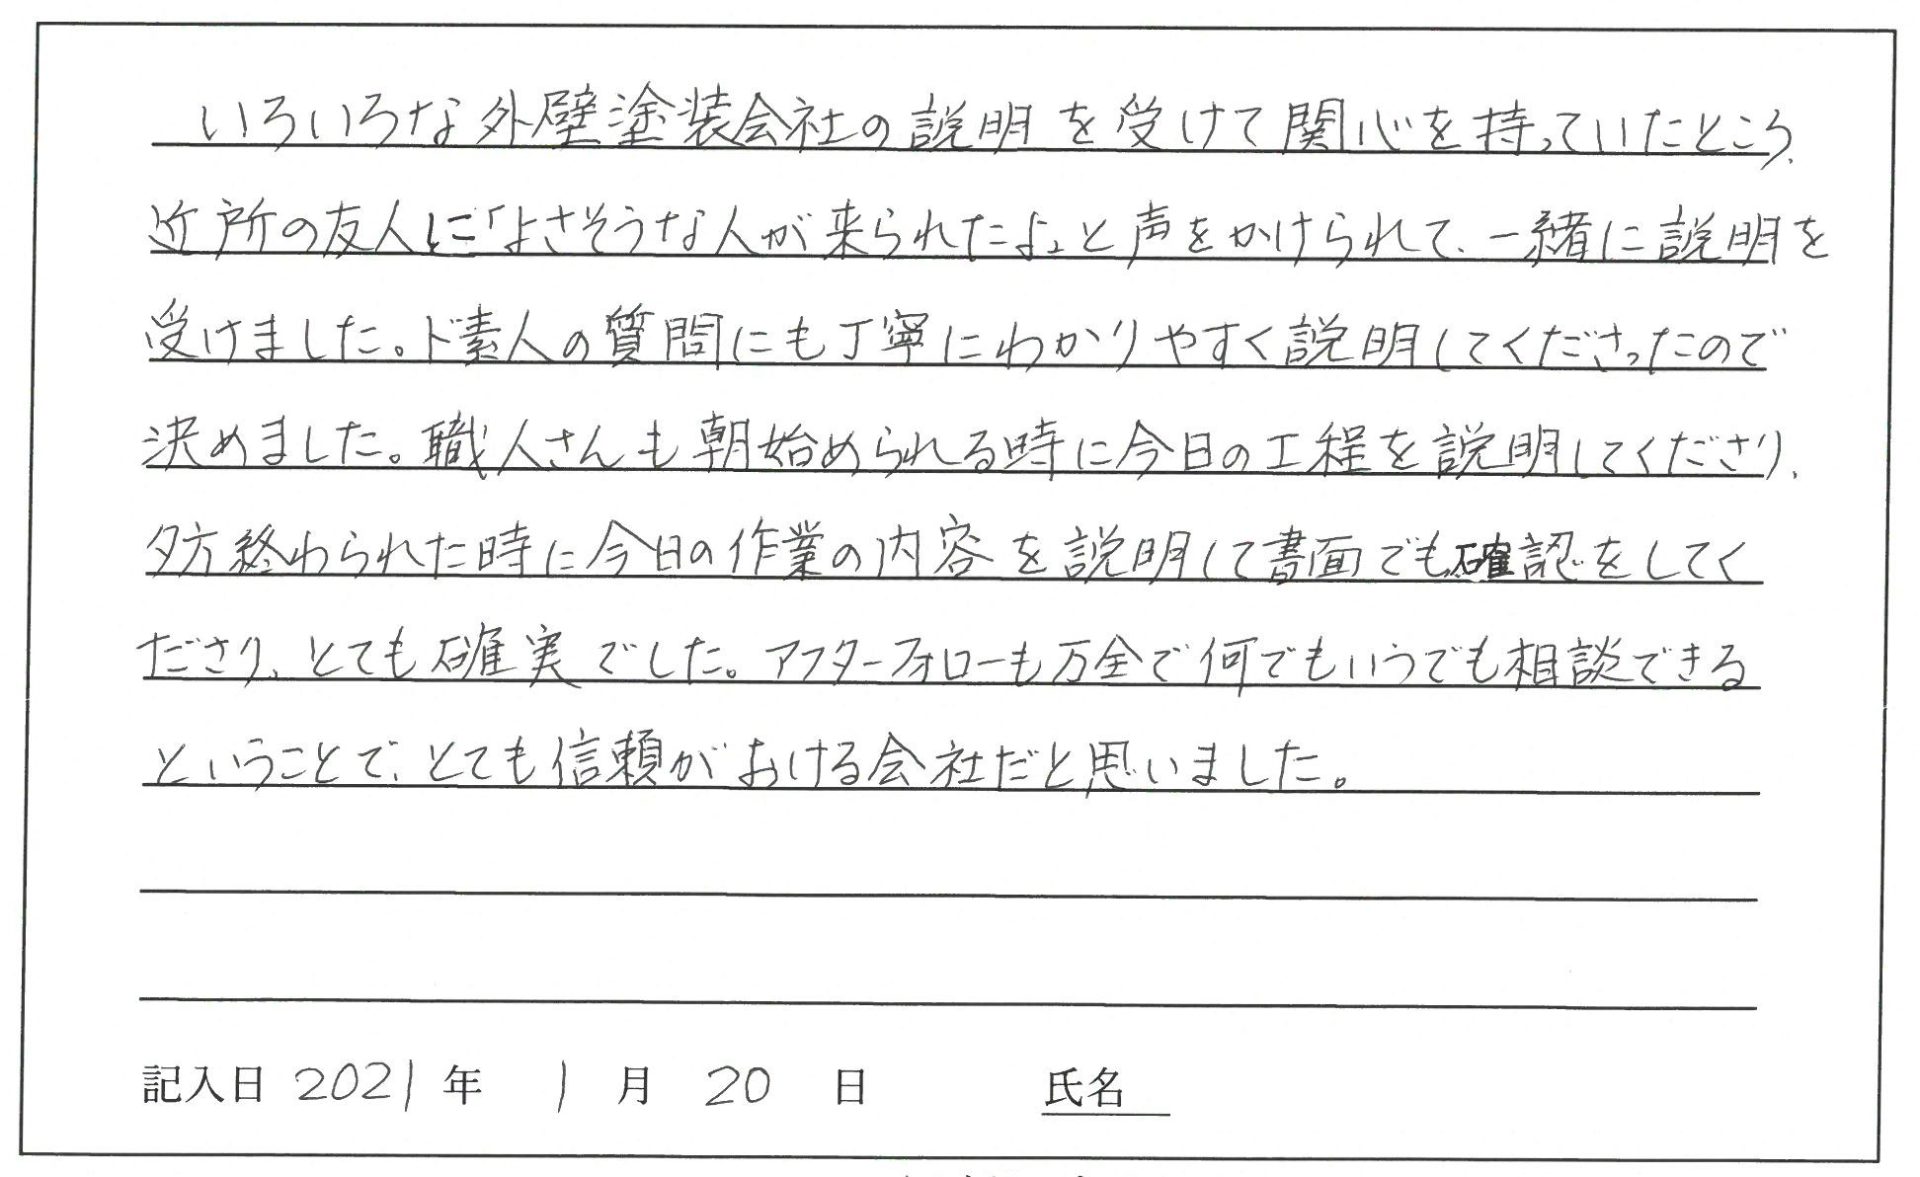 いろいろな外壁塗装会社の説明を受けて関心を持っていたところ、
近所の友人に「よさそうな人が来られたよ」と声をかけられて、一緒に説明を
受けました。ド素人の質問にも丁寧にわかりやすく説明してくださったので
決めました。職人さんも朝始められる時に今日の工程を説明してくださり、
夕方終わられた時に今日の作業の内容を説明して書面でも確認をしてく
ださり、とても確実でした。アフターフォローも万全で何でもいつでも相談できる
ということで、とても信頼がおける会社だと思いました。
記入日 2021 年 1 月 20 日 氏名